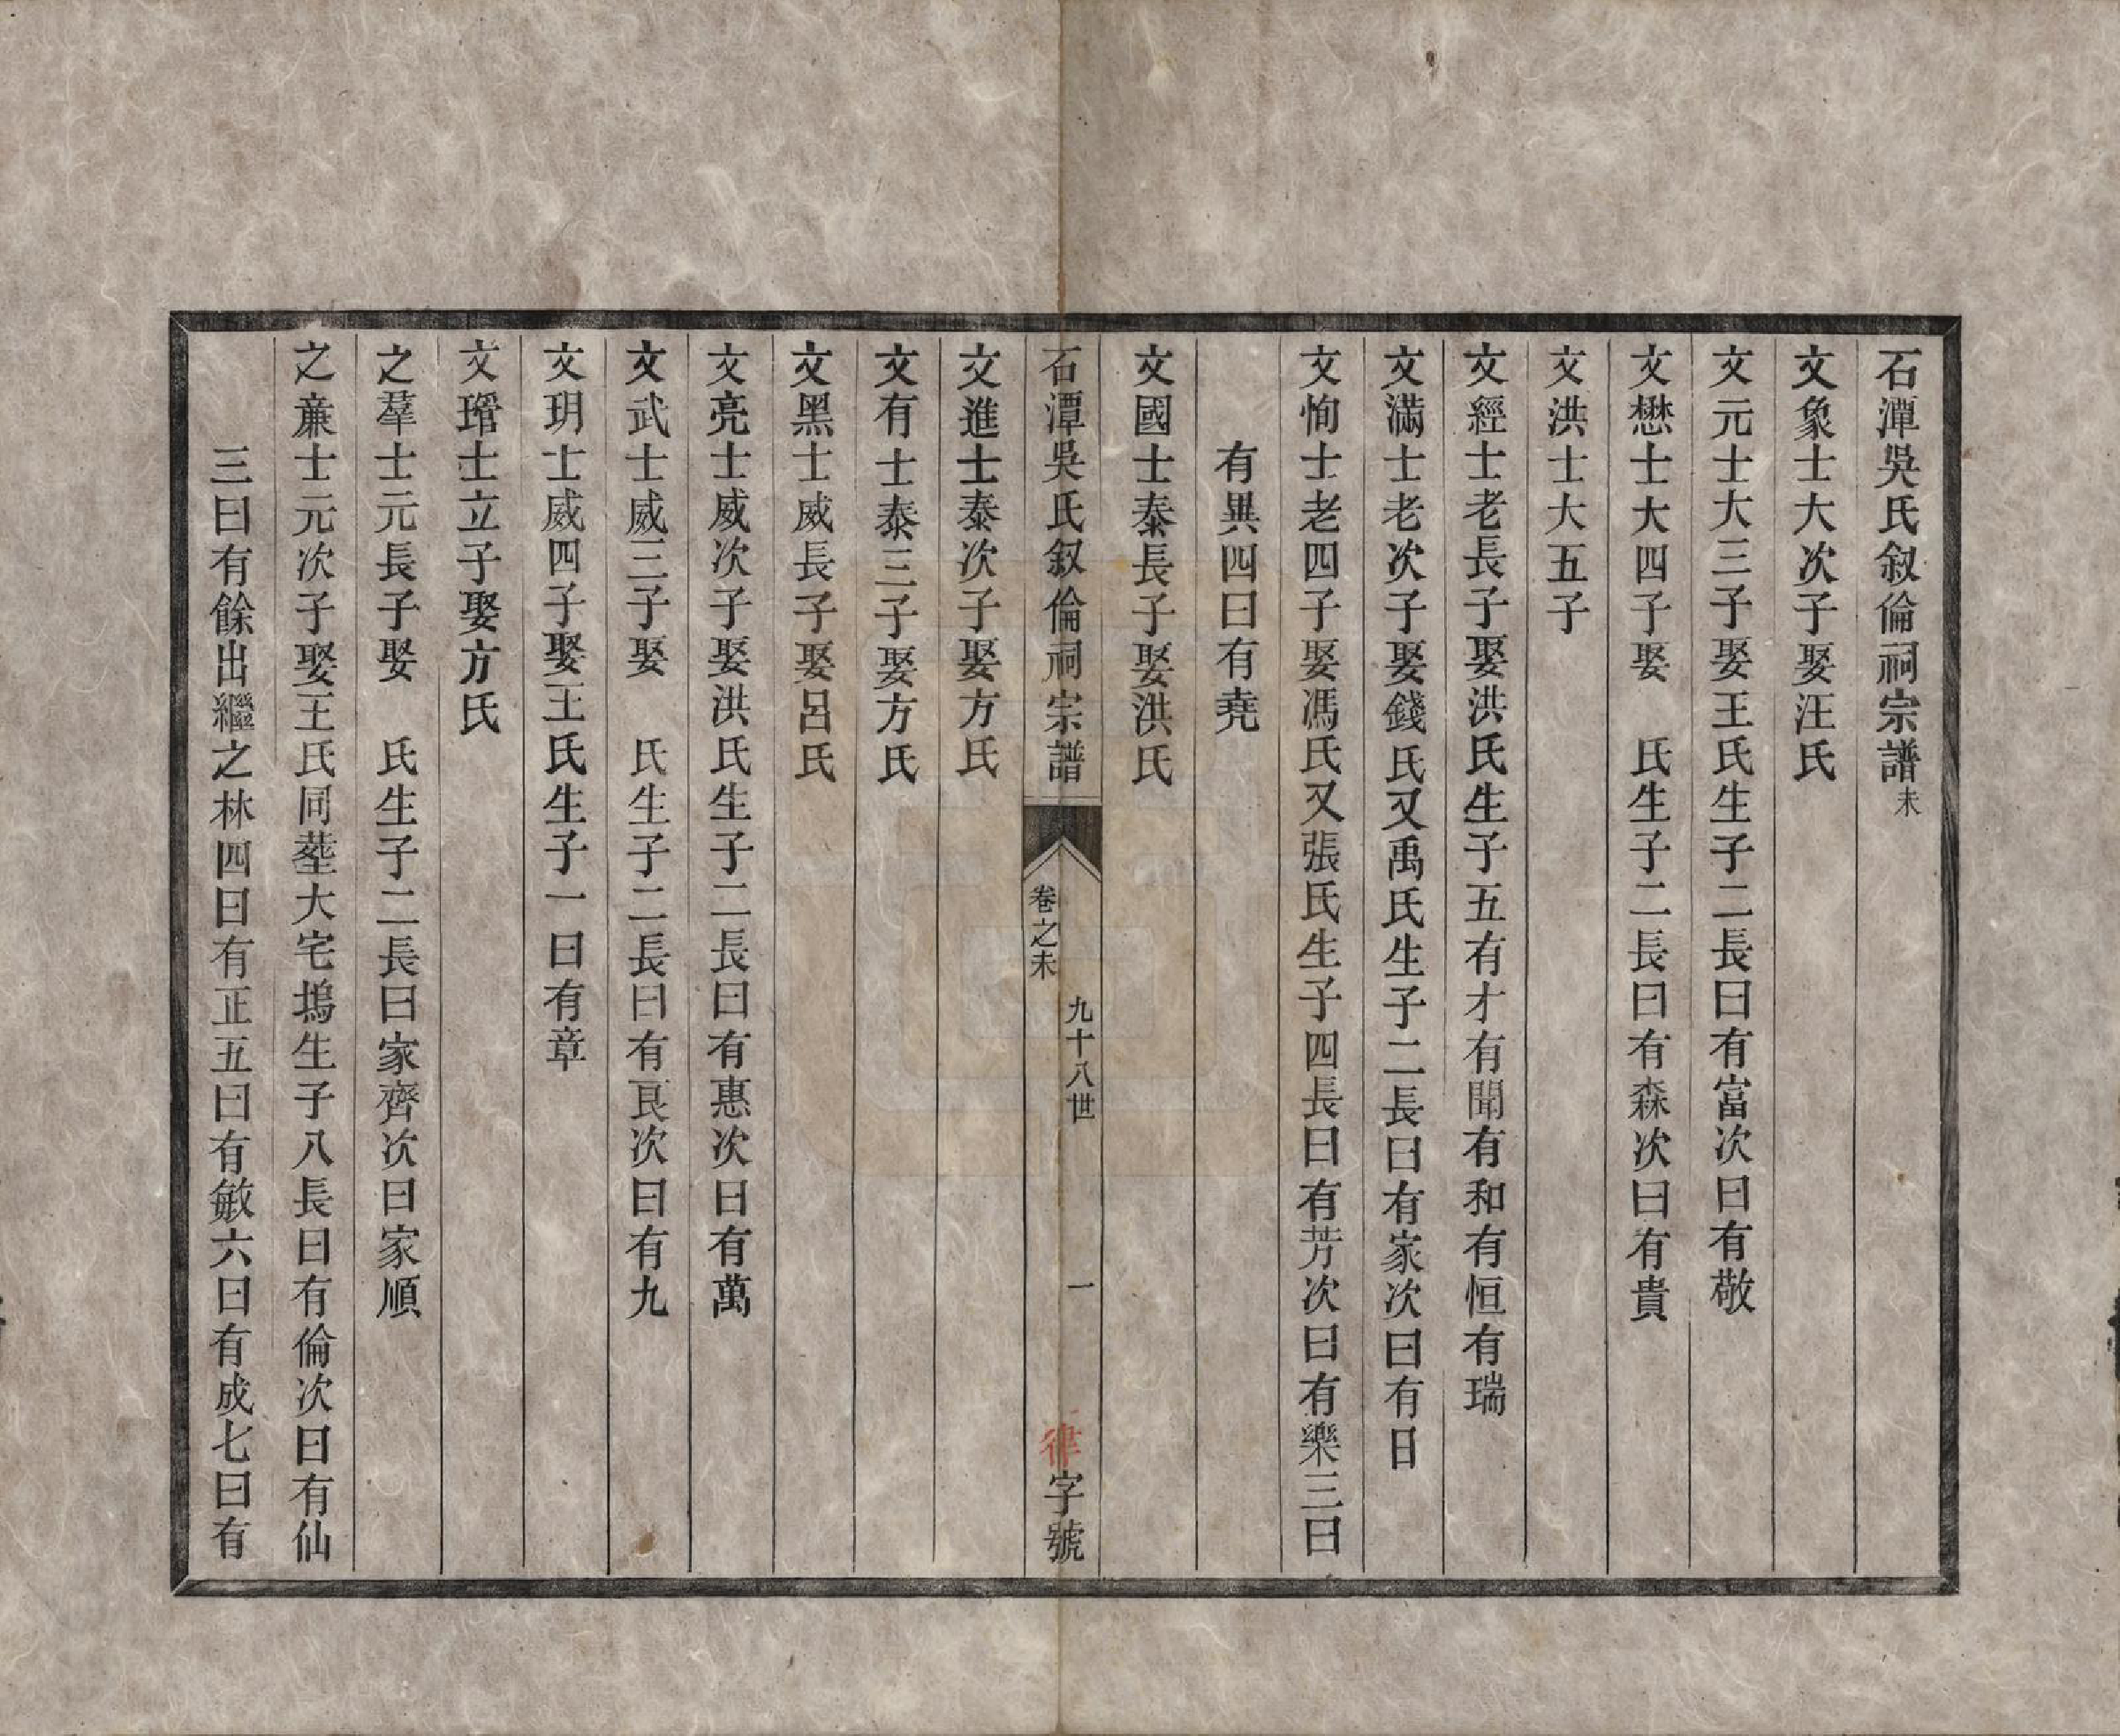 石潭吳氏叙倫祠宗譜未
文象士大次子娶汪氏
文元士大三子娶王氏生子二長曰有富次曰有敬
文懋士大四子娶　氏生子二長曰有森次曰有貴
文洪士大五子
文經士老長子娶洪氏生子五有才有聞有和有恒有瑞
文滿士老次子娶錢氏又禹氏生子二長曰有家次曰有日
文恂士老四子娶馮氏又張氏生子四長曰有芳次曰有樂三曰
有異四曰有堯
文國士泰長子娶洪氏
石潭吳氏叙倫祠宗譜
卷之未
九十八世
一
律字號
文進士泰次子娶方氏
文有士泰三子娶方氏
文黑士威長子娶呂氏
文亮士威次子娶洪氏生子二長曰有惠次曰有萬
文武士威三子娶　氏生子二長曰有良次曰有九
文玥士威四子娶王氏生子一曰有章
文瑠士立子娶方氏
之羣士元長子娶　氏生子二長曰家齊次曰家順
之亷士元次子娶王氏同塟大宅塢生子八長曰有倫次曰有仙
三曰有餘出繼之林四曰有正五曰有敏六曰有成七曰有